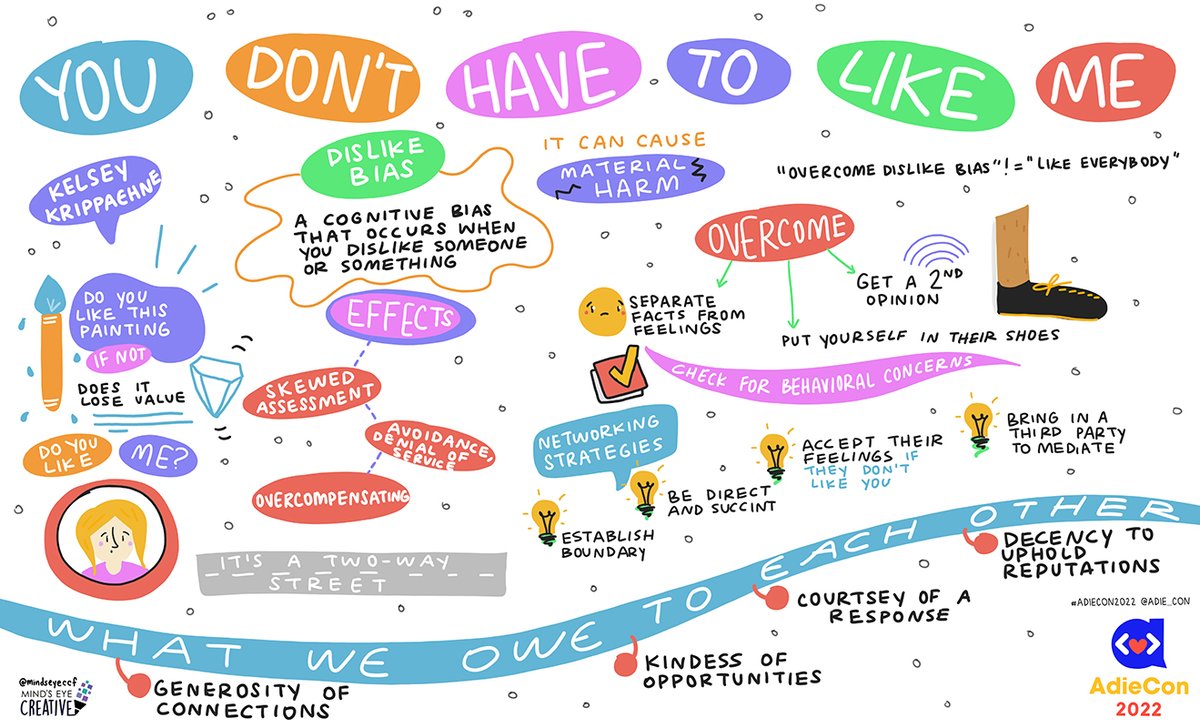 YOU DON'T HAVE TO LIKE ME
KELSEY
KRIPPAEHNE
DISLIKE
BIAS
A COGNITIVE BIAS
THAT OCCURS WHEN
YOU DISLIKE SOMEONE
OR SOMETHING
IT CAN CAUSE
MATERIAL
HARM
"OVERCOME DISLIKE BIAS"!="LIKE EVERYBODY"
DO YOU
LIKE THIS
PAINTING
IF NOT
DOES IT
LOSE VALUE
DO YOU
LIKE
ME?
EFFECTS
SKEWED
ASSESSMENT
AVOIDANCE,
DENIAL OF
SERVICE
OVERCOMPENSATING
IT'S A TWO-WAY
STREET
OVERCOME
SEPARATE
FACTS FROM
FEELINGS
PUT YOURSELF IN THEIR SHOES
GET A 2ND
OPINION
CHECK FOR BEHAVIORAL CONCERNS
NETWORKING
STRATEGIES
ESTABLISH
BOUNDARY
BE DIRECT
AND SUCCINT
ACCEPT THEIR
FEELINGS IF
THEY DON'T
LIKE YOU
BRING IN A
THIRD PARTY
TO MEDIATE
WHAT WE OWE TO EACH OTHER
GENEROSITY OF
CONNECTIONS
KINDESS OF
OPPORTUNITIES
COURTSEY OF A
RESPONSE
DECENCY TO
UPHOLD
REPUTATIONS
#ADIECON2022 @ADIE_CON
AdieCon
2022
@mindseyeccf
MIND'S EYE
CREATIVE